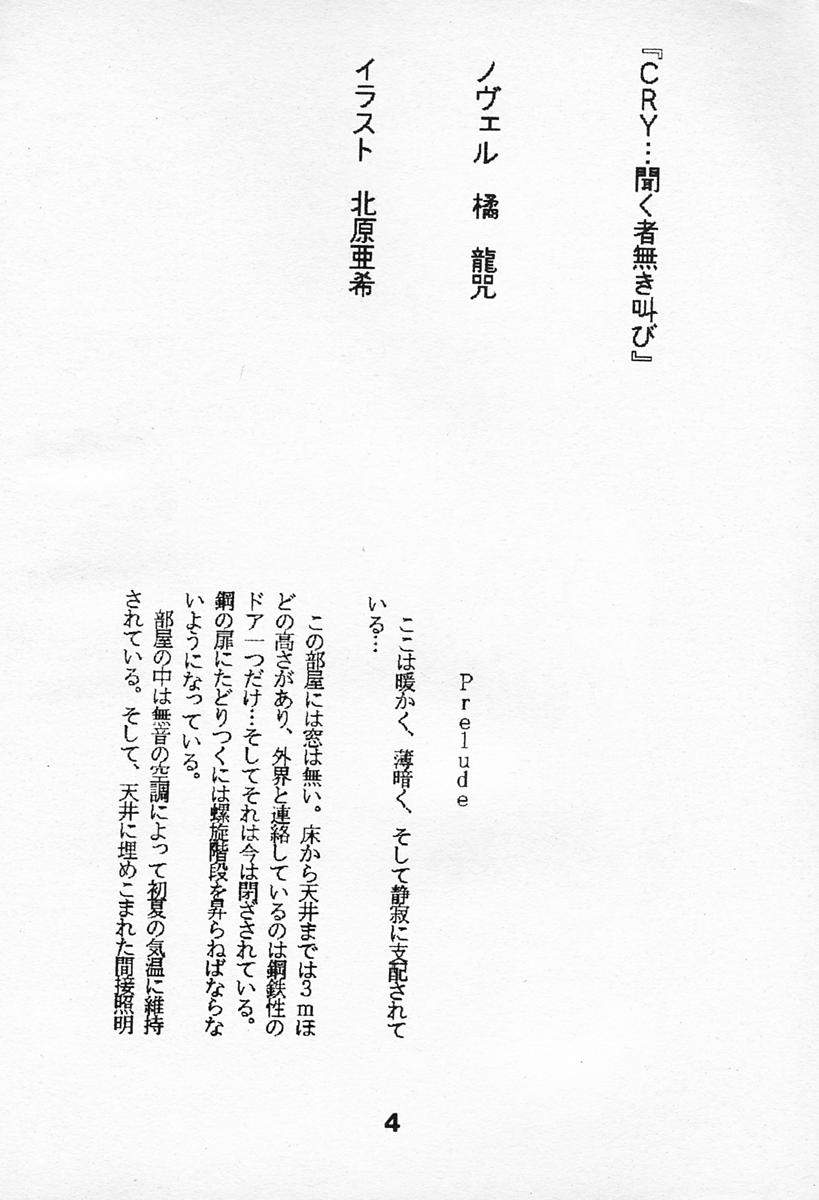 『CRY…聞く者無き叫び』
ノヴェル　橘　龍咒
イラスト　北原亜希
Prelude
　ここは暖かく、薄暗く、そして静寂に支配されて
いる…
　この部屋には窓は無い。床から天井までは3mほ
どの高さがあり、外界と連絡しているのは鋼鉄性の
ドア一つだけ…そしてそれは今は閉ざされている。
鋼の扉にたどりつくには螺旋階段を昇らねばならな
いようになっている。
　部屋の中は無音の空調によって初夏の気温に維持
されている。そして、天井に埋めこまれた間接照明
4